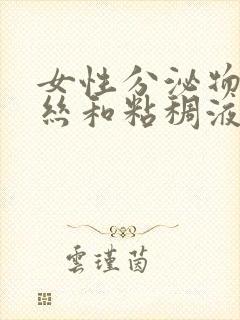 女性分泌物
絲和粘稠液
雲瑾茵